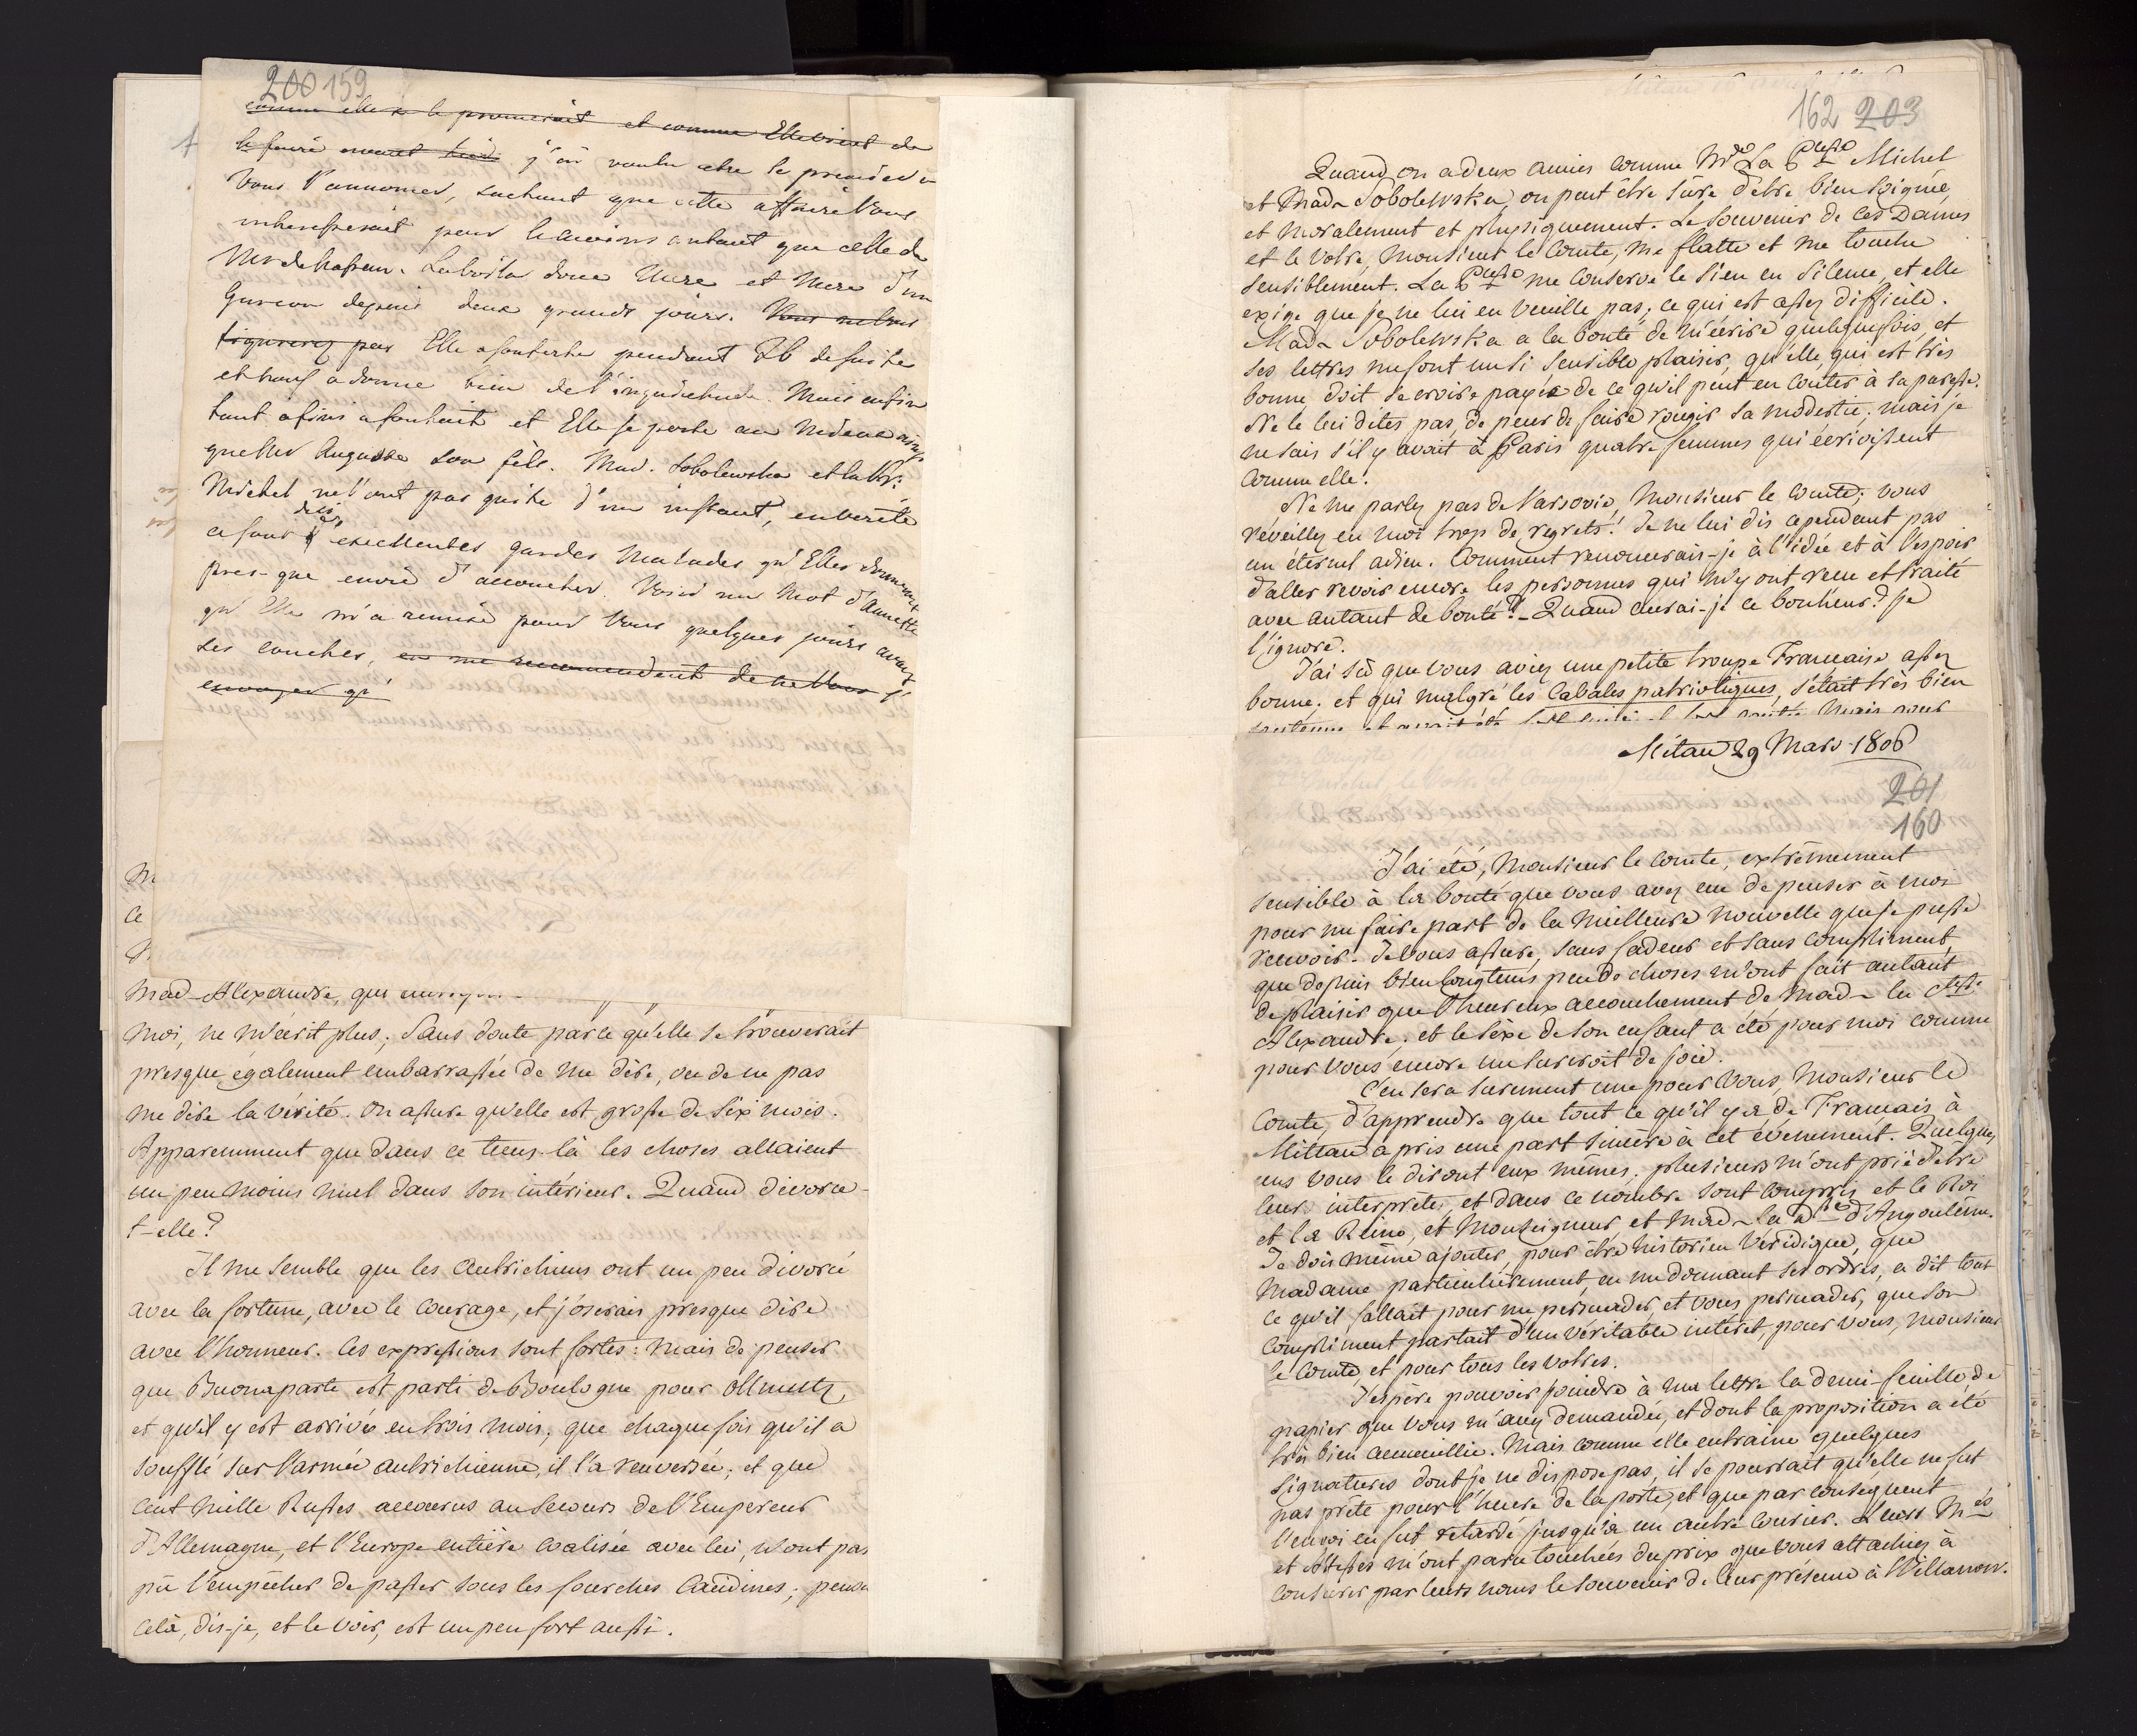 200 159
1
comme elle le promenait et comme Elle vient de
le faire avant hier j'ai voulu etre le premier a
Vous l'annoncer, sachant que cette affaire Vous
interesserait pour le moins autant que celle de
Mr de La voila donc Mere et Mere d'un
Garcon depuis deux grands jours. Vous ne Vous
figurerez pas Elle a souferte pendant 36 de suite
et nous a donné bien de l'inquietude. Mais enfin
tout a fini a souhait et Elle se porte a merveille ainsi
que Mr Auguste son fils. Mad. Sobolewska et la Pr.
Michel ne l'ont pas quitté d'un instant, en verité
ce sont des excellentes gardes malades qu'Elles donnent
presque envie d'accoucher. Voici un mot d'Annette
qu'Elle m'a remise pour Vous quelques jours avant
ses couches, en me recomendant de ne Vous l'
envoyer qu'
M
Ce
Mad-Alexandre, qui
moi, ne m'écrit plus; sans doute parce qu'elle se trouverait
presque également embarrassée de me dire, ou de ne pas
me dire la vérité. On assure qu'elle est grosse de six mois.
Apparemment que dans ce tems-là les choses allaient
un peu moins mal dans son intérieur. Quand divorce-
t-elle?
Il me semble que les Autrichiens ont un peu divorcé
avec la fortune, avec le courage, et j'oserais presque dire
avec l'honneur. Ces expressions sont fortes: mais de penser
que Buonaparte est parti de Boulogne pour Ollmutz,
et qu'il y est arrivé en trois mois; que chaque fois qu'il a
soufflé sur l'armée autrichienne, il l'a renversée; et que
cent mille Russes accourus au secours de l'Empereur
d'Allemagne, et l'Europe entière coalisée avec lui, n'ont pas
pû l'empêcher de passer sous les fourches Caudines; penser
celà, dis-je, et le voir, est un peu fort aussi.
162 203
Quand on a deux amies comme Mde La Pcesse Michel
et Made Sobolewska, on peut être sûre d'être bien soignée,
et moralement et physiquement. Le souvenir de ces Dames
et le vôtre, Monsieur le Comte, me flatte et me touche
sensiblement. La Pcesse me conserve le sien en silence, et elle
exige que je ne lui en veuille pas; ce qui est assez difficile.
Made Sobolewska a la bonté de m'écrire quelquefois, et
ses lettres me font un si sensible plaisir, qu'elle, qui est très
bonne, doit se croire payée de ce qu'il peut en couter à sa paresse.
Ne le lui dites pas, de peur de faire rougir sa modestie; mais je
ne sais s'il y avait à Paris quatre femmes qui écrivissent
comme elle.
Ne me parlez pas de Varsovie, Monsieur le Comte; vous
réveillez en moi trop de regrets! Je ne lui dis cependant pas
un éternel adieu. Comment renoncerais-je à l'idée et à l'espoir
d'aller revoir encore les personnes qui m'y ont reçu et traité
avec autant de bonté? - Quand aurai-je ce bonheur? Je
l'ignore.
J'ai sû que vous aviez une petite troupe Française assez
bonne; et qui malgré les cabales patriotiques, s'était très bien
soutenue et avait été Mais pour
Mitau 29 Mars 1806
201
160
J'ai été, Monsieur le Comte, extrêmement
sensible à la bonté que vous avez eue de penser à moi
pour me faire part de la meilleure nouvelle que je pusse
recevoir. Je vous assure, sans fadeur et sans compliment,
que depuis bien longtems peu de choses m'ont fait autant
de plaisir que l'heureux accouchement de Made la Ctesse
Alexandre; et le sexe de son enfant a été pour moi comme
pour vous encore un surcroit de joie.
C'en sera surement une pour vous, Monsieur le
Comte, d'apprendre que tout ce qu'il y a de Français à
Mittau a pris une part sincère à cet évènement. Quelques
uns vous le diront eux mêmes; plusieurs m'ont prié d'être
leur interprète, et dans ce nombre sont compris et le Roi
et la Reine, et Monseigneur, et Made la Desse d'Angoulême.
Je dois même ajouter, pour être historien véridique, que
Madame particulièrement, en me donnant ses ordres, a dit tout
ce qu'il fallait pour me persuader, et vous persuader, que son
compliment partait d'un véritable intérêt, pour vous, Monsieur
le Comte, et pour tous les vôtres.
J'espère pouvoir joindre à ma lettre la demi-feuille de
papier que vous m'avez demandée, et dont la proposition a été
très bien accueillie. Mais comme elle entraine quelques
signatures dont je ne dispose pas, il se pourrait qu'elle ne fut
pas prête pour l'heure de la poste, et que par conséquent
l'envoi en fut retardé jusqu'à un autre Courier. Leurs Més
et Altesses m'ont paru touchées du prix que vous attachiez à
conserver par leurs noms le souvenir de leur présence à Willanow.